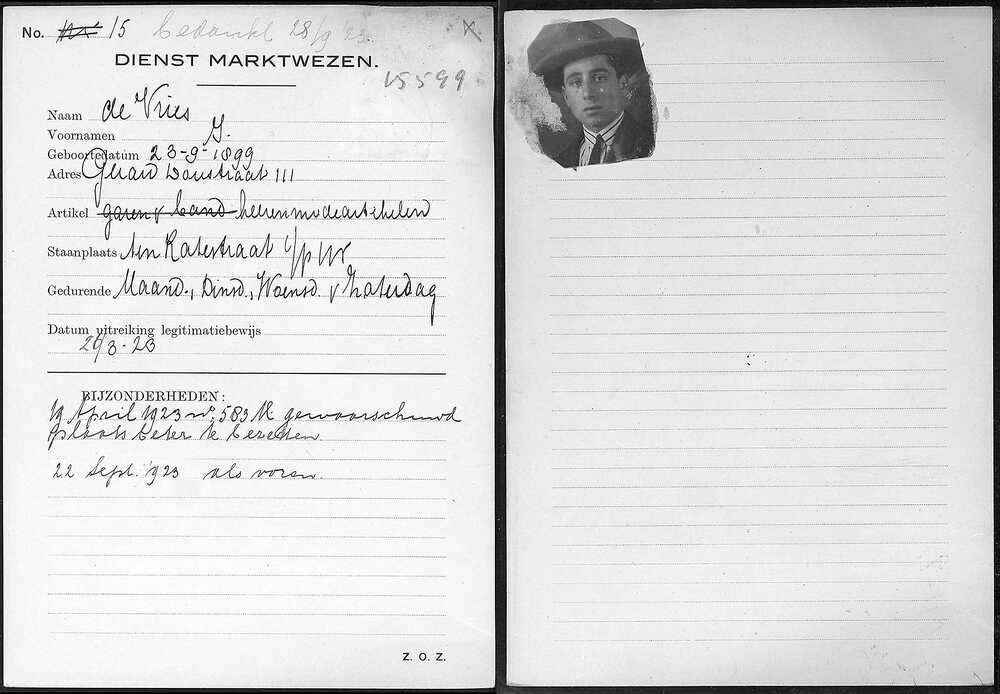 No. 15 bedankt 28/9 '23.
DIENST MARKTWEZEN.
15599
Naam de Vries
Voornamen J.
Geboortedatum 23-9-1899
Adres Gerard Doustraat 111
Artikel garen & band heerenmodeartikelen
Staanplaats ten Katestraat
Gedurende Maand., Dinsd., Woensd. & Zaterdag
Datum uitreiking legitimatiebewijs
26/3-23
BIJZONDERHEDEN:
19 April 1923 no. 583 M. gewaarschuwd
plaats beter te bezetten.
22 Sept. 1923 als voren.
Z. O. Z.